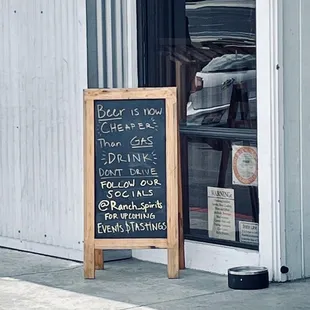 Beer is now
CHEAPER
Than GAS
DRINK
DONT DRIVE
FOLLOW OUR
SOCIALS
@Ranch_spirits
FOR UPCOMING
EVENTS & TASTINGS
WARNING